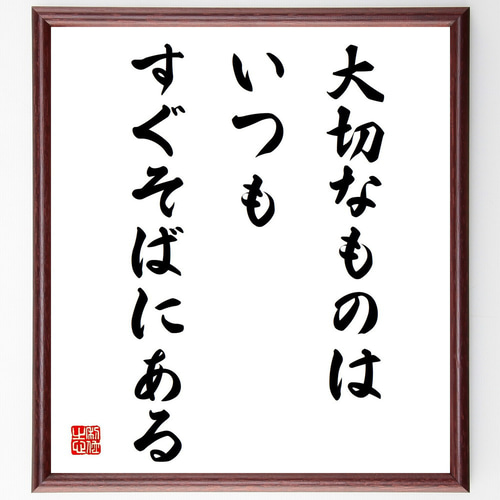 大切なものは
いつも
すぐそばにある